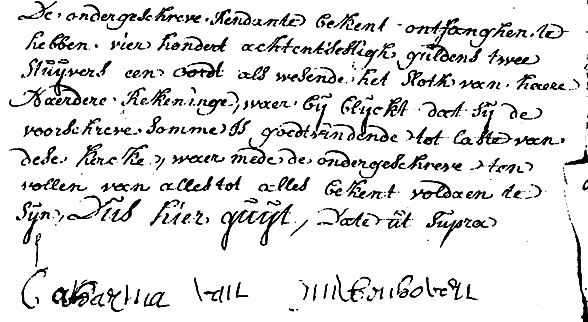 De ondergeschreve Rendante bekent ontfanghen te
hebben vier hondert achtentseltigh guldens twee
stuijvers een oordt als wesende het sloth van haere
Naerdere Rekeninge, waer bij blijckt dat sij de
voorschreve somme is goedtvindende tot laste van
dese kircke, waer mede de ondergeschreve ten
vollen van alles tot alles bekent voldaen te
sijn, Dus hier quijt, Date ut supra
Catharina van